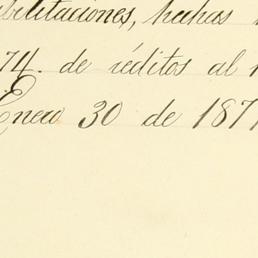 bilitaciones, hechas
74. de réditos al
Enero 30 de 187